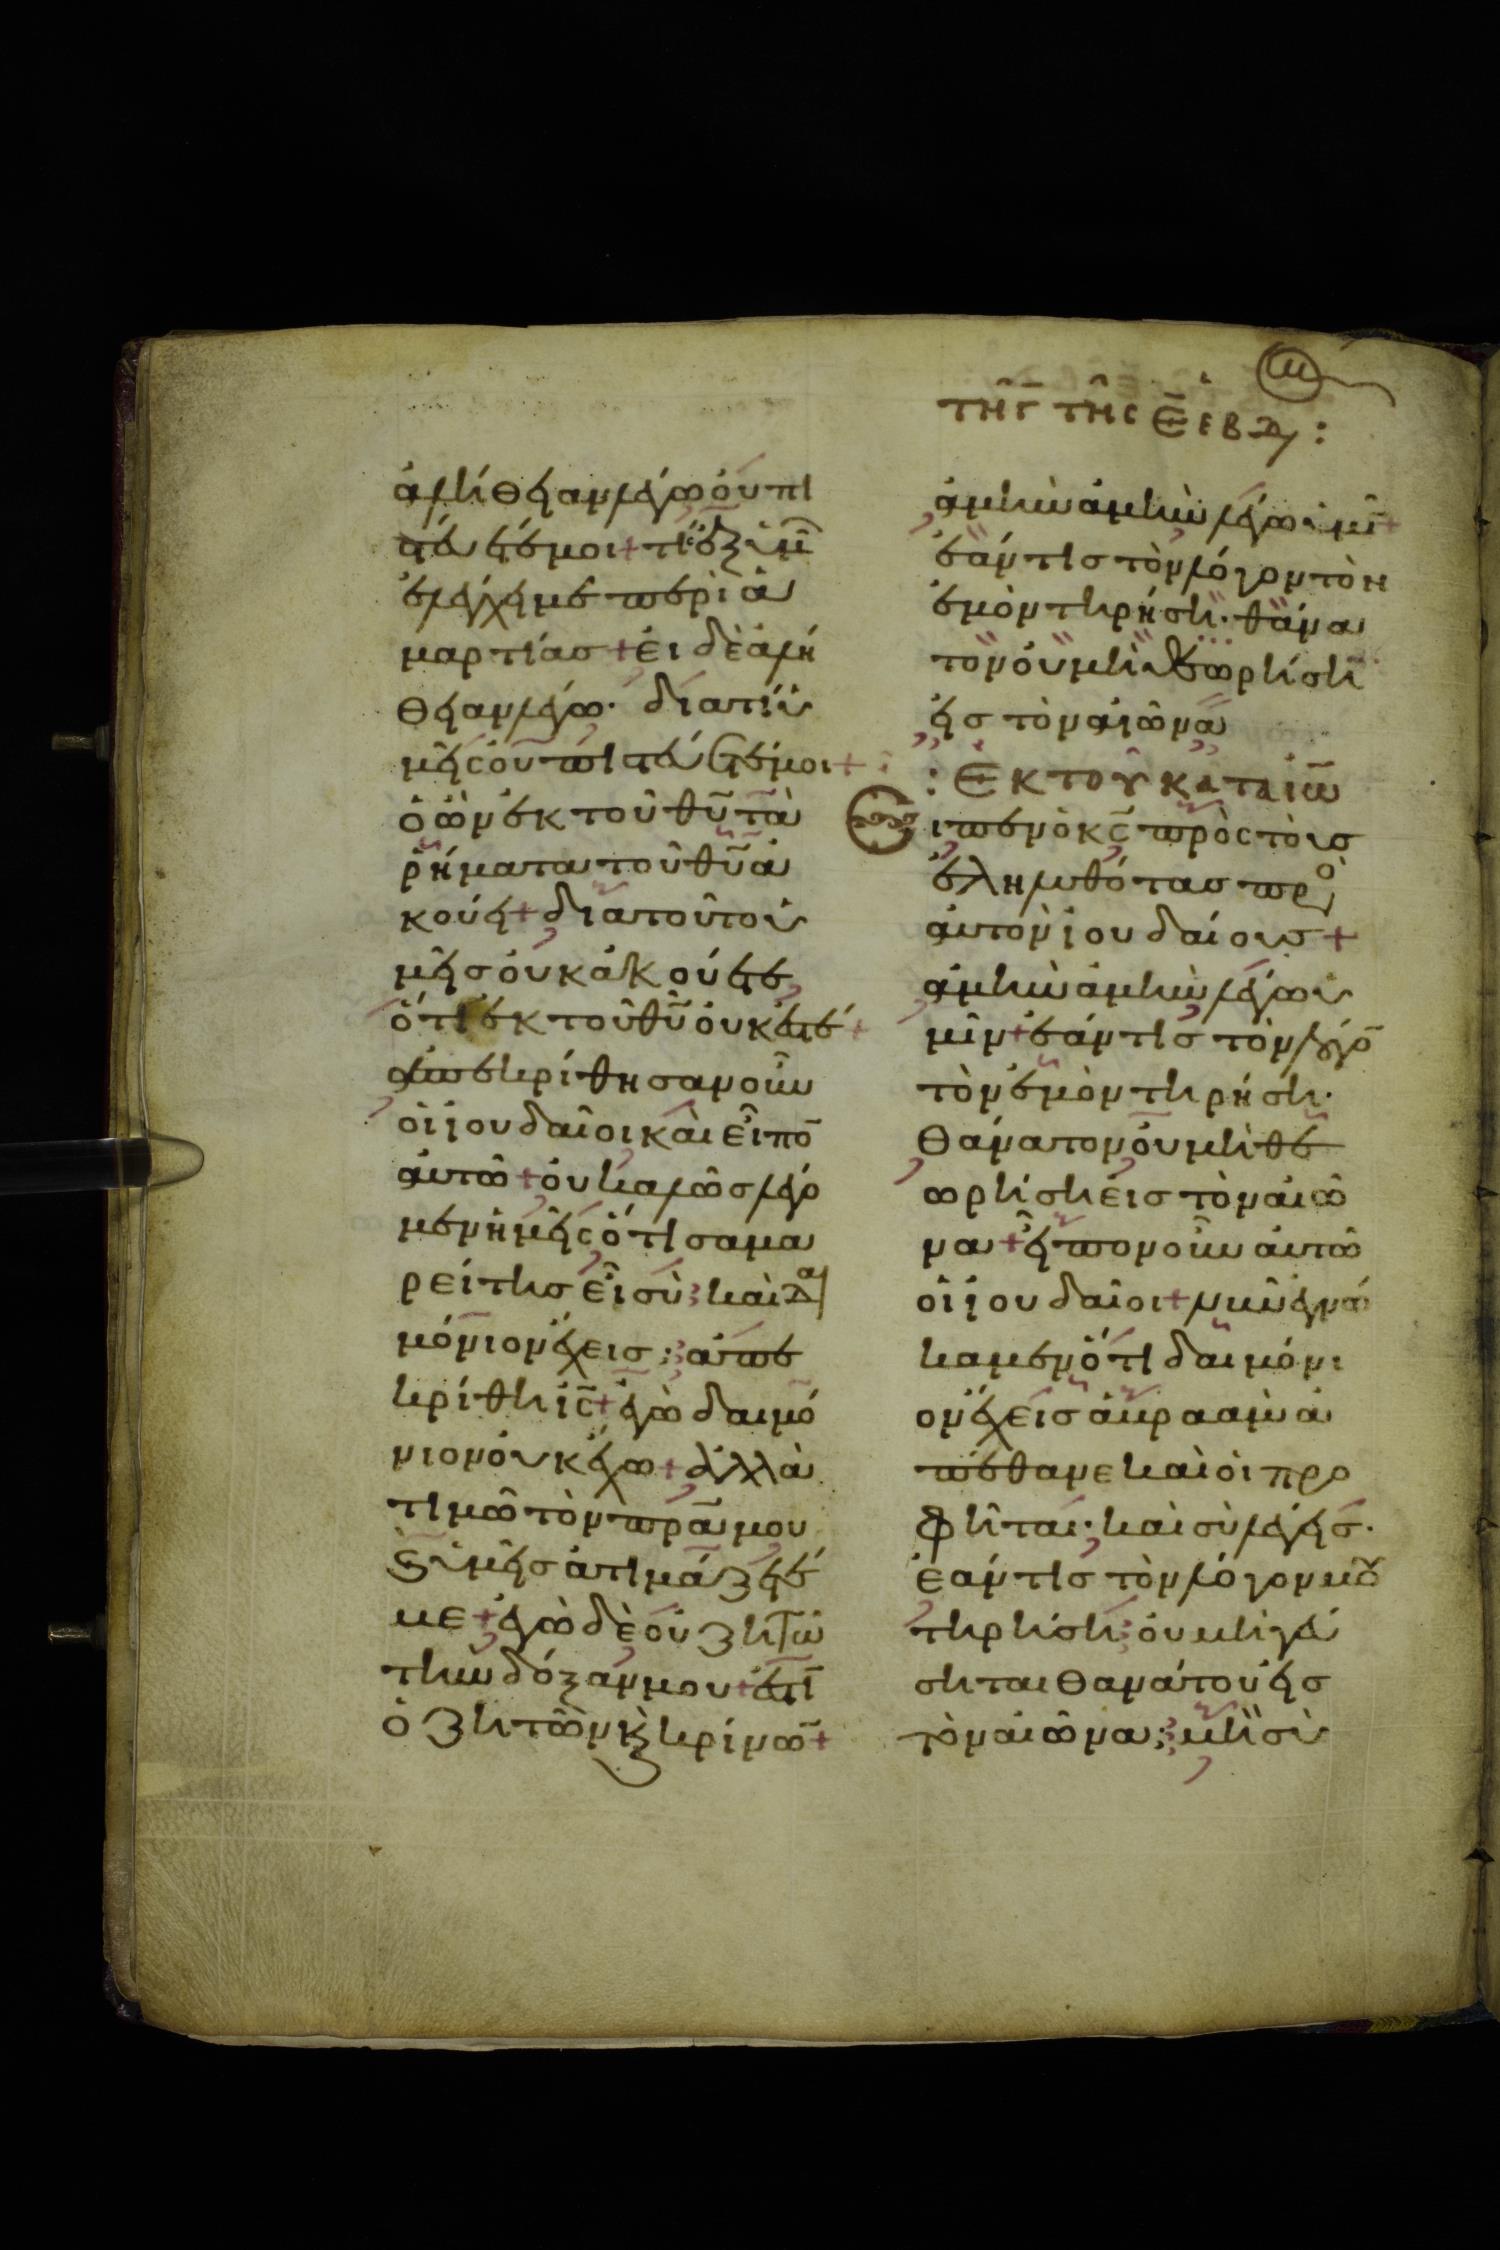 τῆ γ̅ τῆς ε̅ ἑβδ :
ἀλήθειαν λέγω οὐ πι
στεύετέ μοι + τίς ἐξ ὑμῶ̅
ἐλέγχει με περὶ ἁ
μαρτίας + εἰ δὲ ἀλή
θειαν λέγω · διατί ὑ
μεῖς οὐ πιστεύετέ μοι +
ὁ ὢν ἐκ τοῦ θυ̅ τὰ
ῥήματα τοῦ θυ̅ ἀ
κούει + διατοῦτο ὑ
μεῖς οὐκ ἀκούετε
ὅτι ἐκ τοῦ θυ̅ οὐκ ἐστέ +
ἀπεκρίθησαν οὖν
οἱ ἰουδαῖοι καὶ εἶπο̅
αὐτῶ + οὐ καλῶς λέγο
μεν ἡμεῖς ὅτι σαμα
ρείτης εἶ σὺ καὶ δαι
μόνιον ἔχεις ; ἀπε
κρίθη ις̅ + ἐγὼ δαιμό
νιον οὐκ ἔχω + ἀλλὰ
τιμῶ τὸν πρα̅ μου
καὶ ὑμεῖς ἀτιμάζετέ
με + ἐγὼ δὲ οὐ ζητῶ
τὴν δόξαν μου + ἔστι̅
ὁ ζητῶν κ κρίνω̅ +
ἀμὴν ἀμὴν λέγω ὑμῖ̅ +
ἐάν τις τὸν λόγον τὸν
ἐμὸν τηρήση · θάνα
τον οὐ μὴ θεωρήση
εἰς τὸν αἰῶνα
: Ἐκ τοῦ κατὰ ἰω̅
Εἶπεν ὁ κς̅ πρὸς τοὺς
ἐληλυθότας πρὸ
αὐτὸν ἰουδαίους +
ἀμὴν ἀμὴν λέγω ὑ
μῖν + ἐάν τις τὸν λόγο̅
τὸν ἐμὸν τηρήση ·
θάνατον οὐ μὴ θε
ωρήση εἰς τὸν αἰῶ
να + εἶπον οὖν αὐτῶ
οἱ ἰουδαῖοι + νῦν ἐγνώ
καμεν ὅτι δαιμόνι
ον ἔχεις ἀβραὰμ ἀ
πέθανε καὶ οἱ προ
φῆται · καὶ σὺ λέγεις ·
ἐάν τις τὸν λόγον μου
τηρήση οὐ μὴ γεύ
σηται θανάτου εἰς
τὸν αἰῶνα ; μὴ σὺ